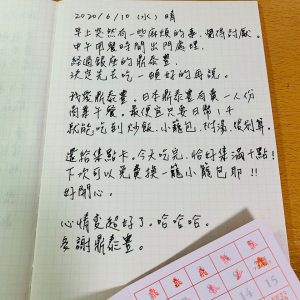 2020/6/10 (水) 晴
早上突然有一些麻煩的事，覺得討厭。
中午用餐時間出門處理，
經過銀座的鼎泰豐，
決定先去吃一頓好的再說。
我愛鼎泰豐。日本鼎泰豐有賣一人份
商業午餐。最便宜只要日幣1千
就能吃到炒飯、小籠包、附湯，很划算。
還給集點卡。今天吃完，恰好集滿十點！
下次可以免費換一籠小籠包耶！！
好開心。
心情變超好了。哈哈哈。
多謝鼎泰豐。
14 15